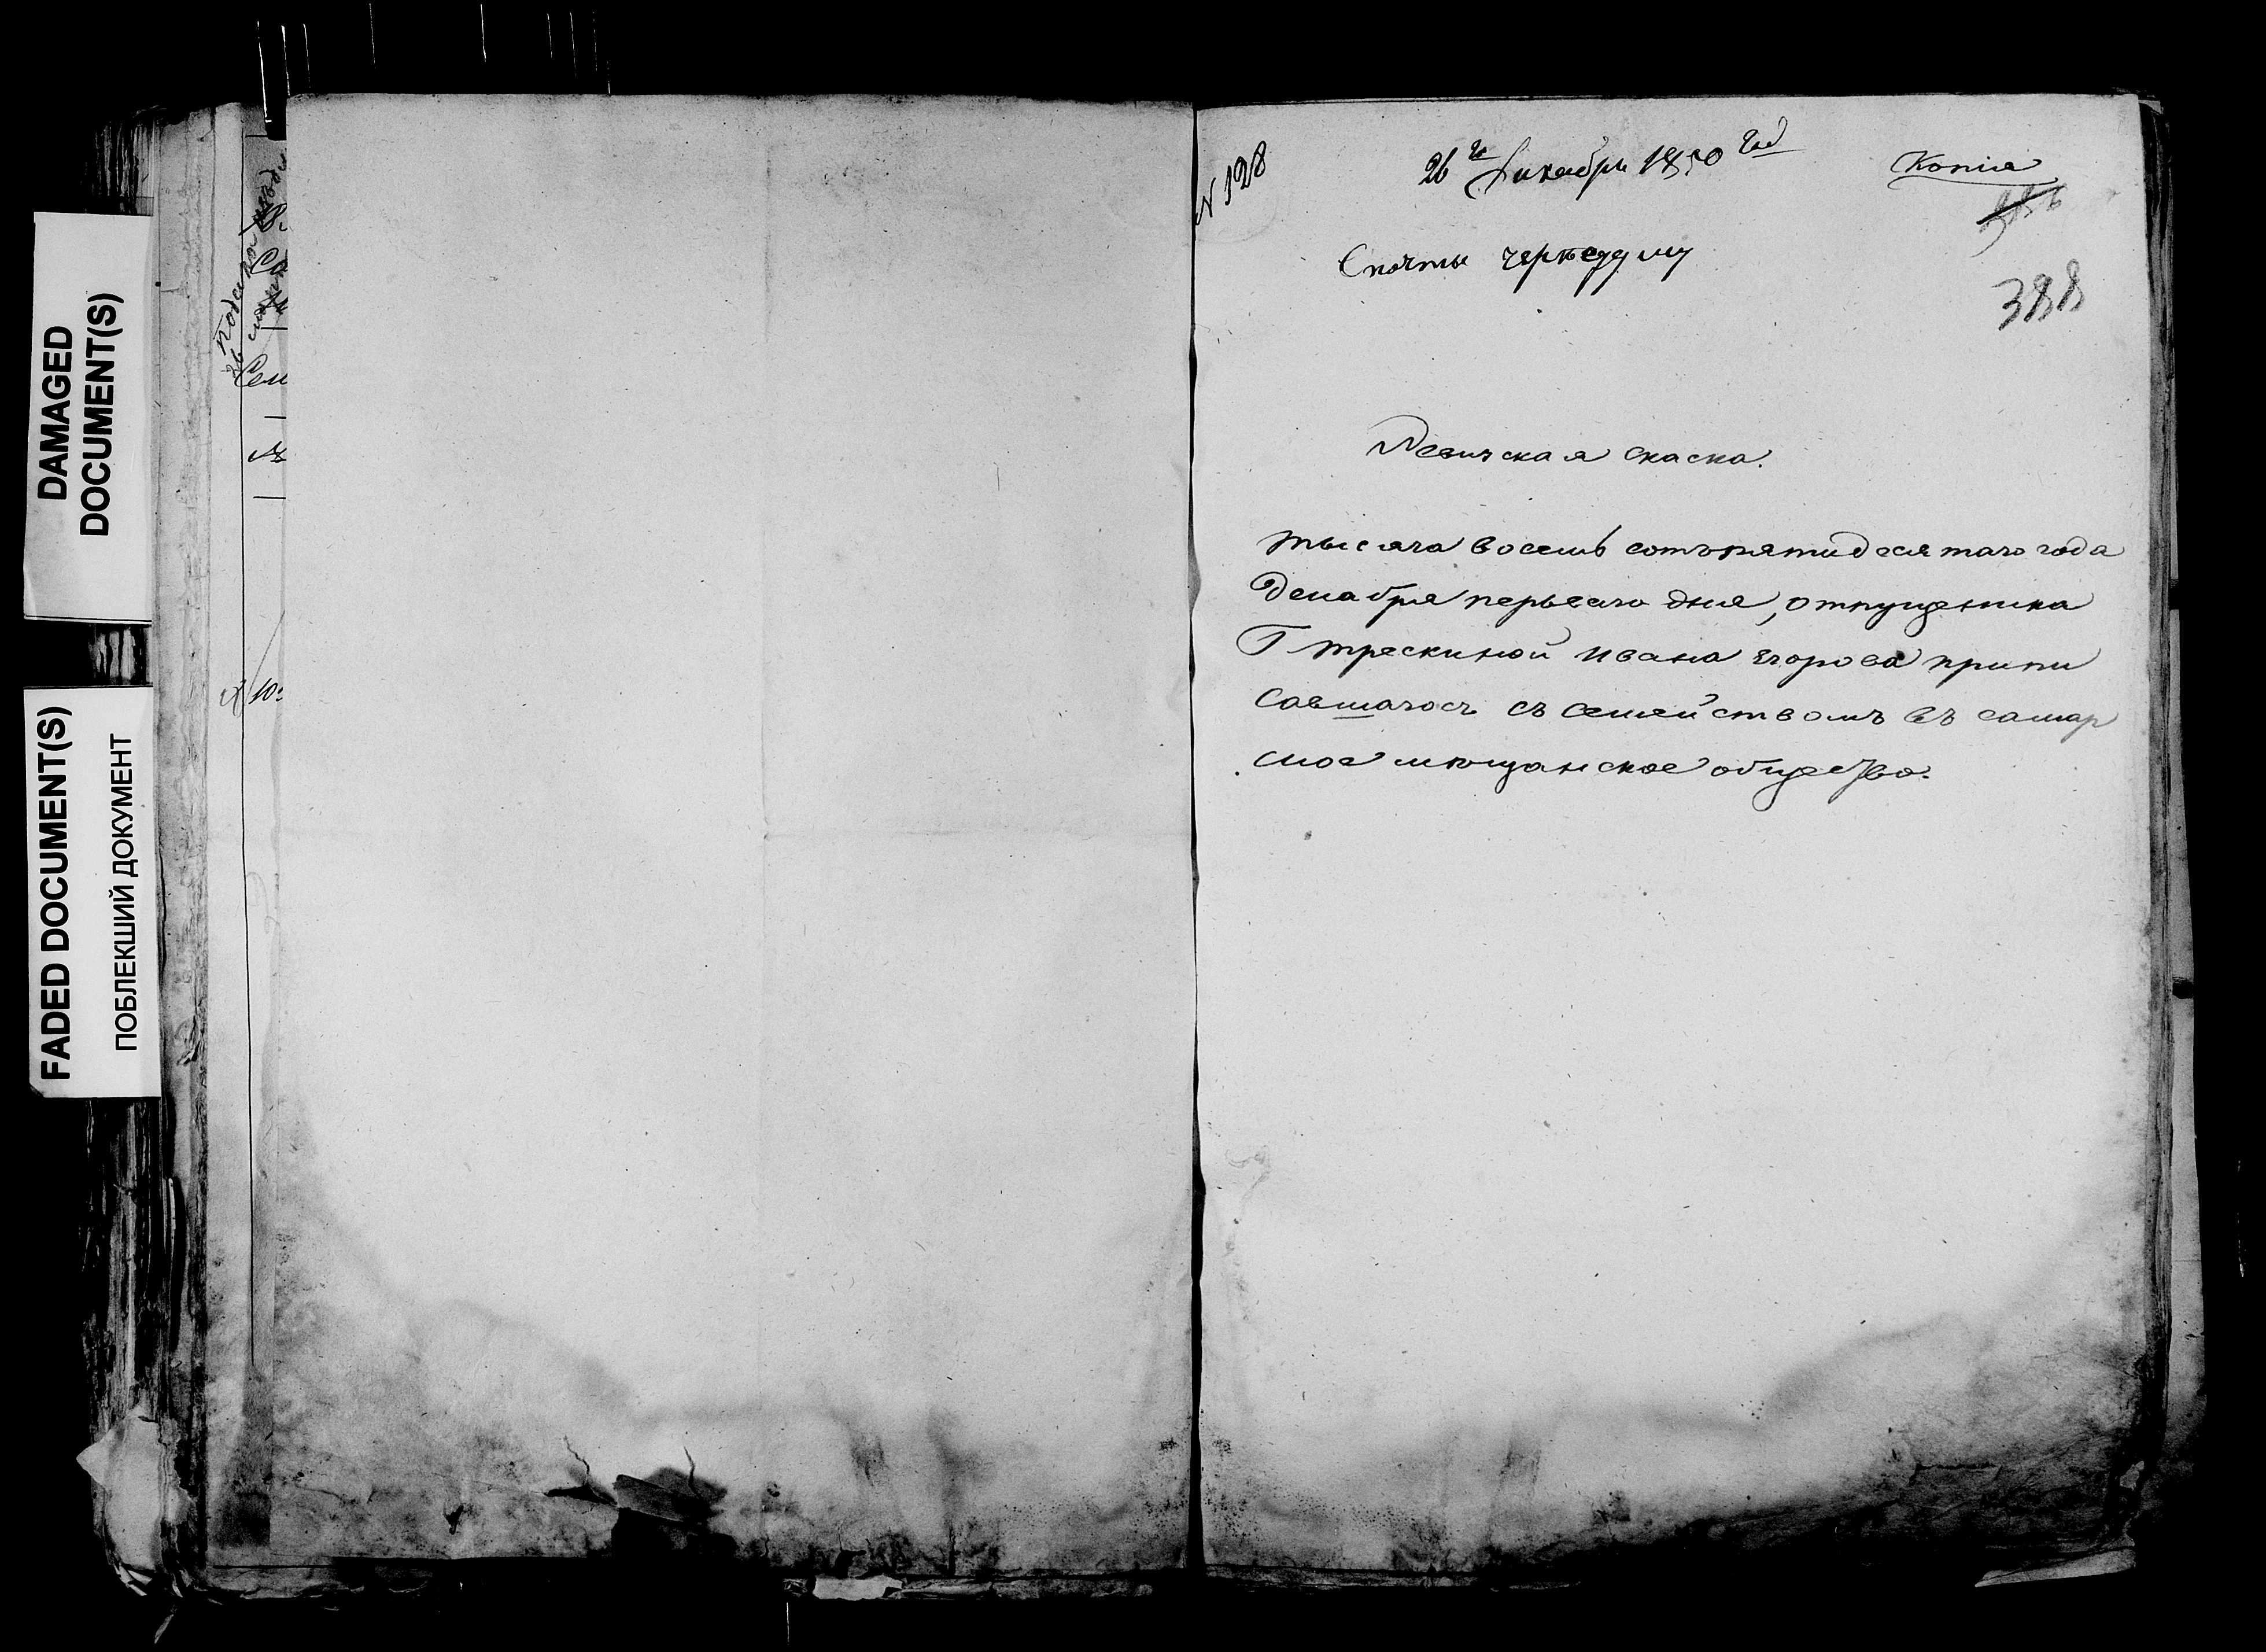 DAMAGED
DOCUMENT(S)
FADED DOCUMENT(S)
ПОБЛЕКШИЙ ДОКУМЕНТ
Сем
10
N 128
26 декабря 1850 год
Копія
388
Спочты
Ревиская скаска.
тысяча восемь сотъ пятидесятаго года
Декабря перваго дня, отпущеника
Г Трескиной Ивана Егорова припи
савшагось съ семействомъ въ самар
ское мѣщанское общество.